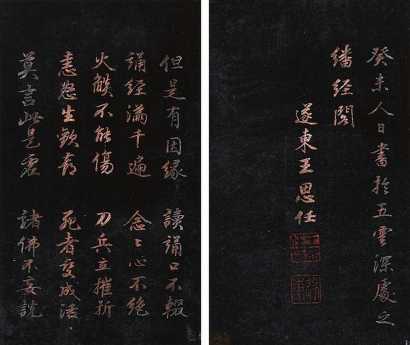 但是有因緣 讀誦口不輟
誦經滿千遍 念々心不絕
火燄不能傷 刀兵立摧折
恚怒生歡喜 死者變成活
莫言此是虛 諸佛不妄說
癸未人日書於五雲深處之
繙經閣
遂東王思任